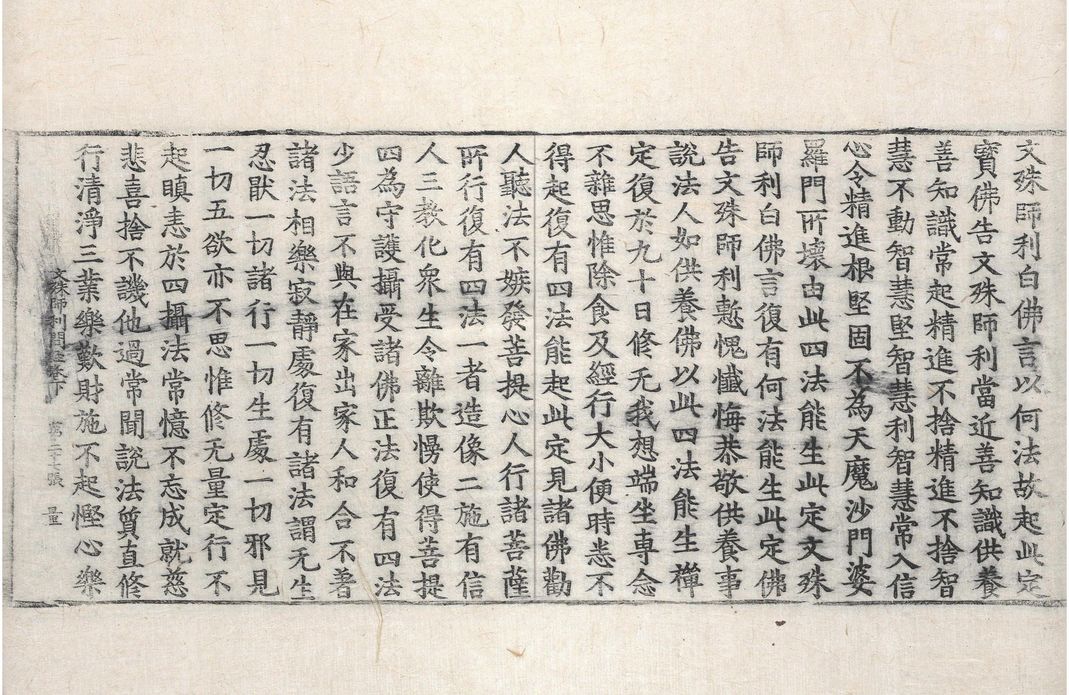 文殊師利白佛言以何法故起此定
寳佛告文殊師利當近善知識供養
善知識常起精進不捨精進不捨智
慧不動智慧堅智慧利智慧常入信
心令精進根堅固不為天魔沙門婆
羅門所壞由此四法能生此定文殊
師利白佛言復有何法能生此定佛
告文殊師利慙愧懺悔恭敬供養事
說法人如供養佛以此四法能生禪
定復於九十日修无我想端坐専念
不雜思惟除食及經行大小便時悉不
得起復有四法能起此定見諸佛勸
人聽法不嫉發菩提心人行諸菩薩
所行復有四法一者造像二施有信
人三教化衆生令離欺慢使得菩提
四為守護攝受諸佛正法復有四法
少語言不與在家出家人和合不著
諸法相樂寂静處復有諸法謂无生
忍猒一切諸行一切生處一切邪見
一切五欲亦不思惟修无量定行不
起瞋恚於四攝法常憶不忘成就慈
悲喜捨不譏他過常聞說法質直修
行清淨三業樂歎財施不起慳心樂
文殊師利問經卷下 第二十七張 量